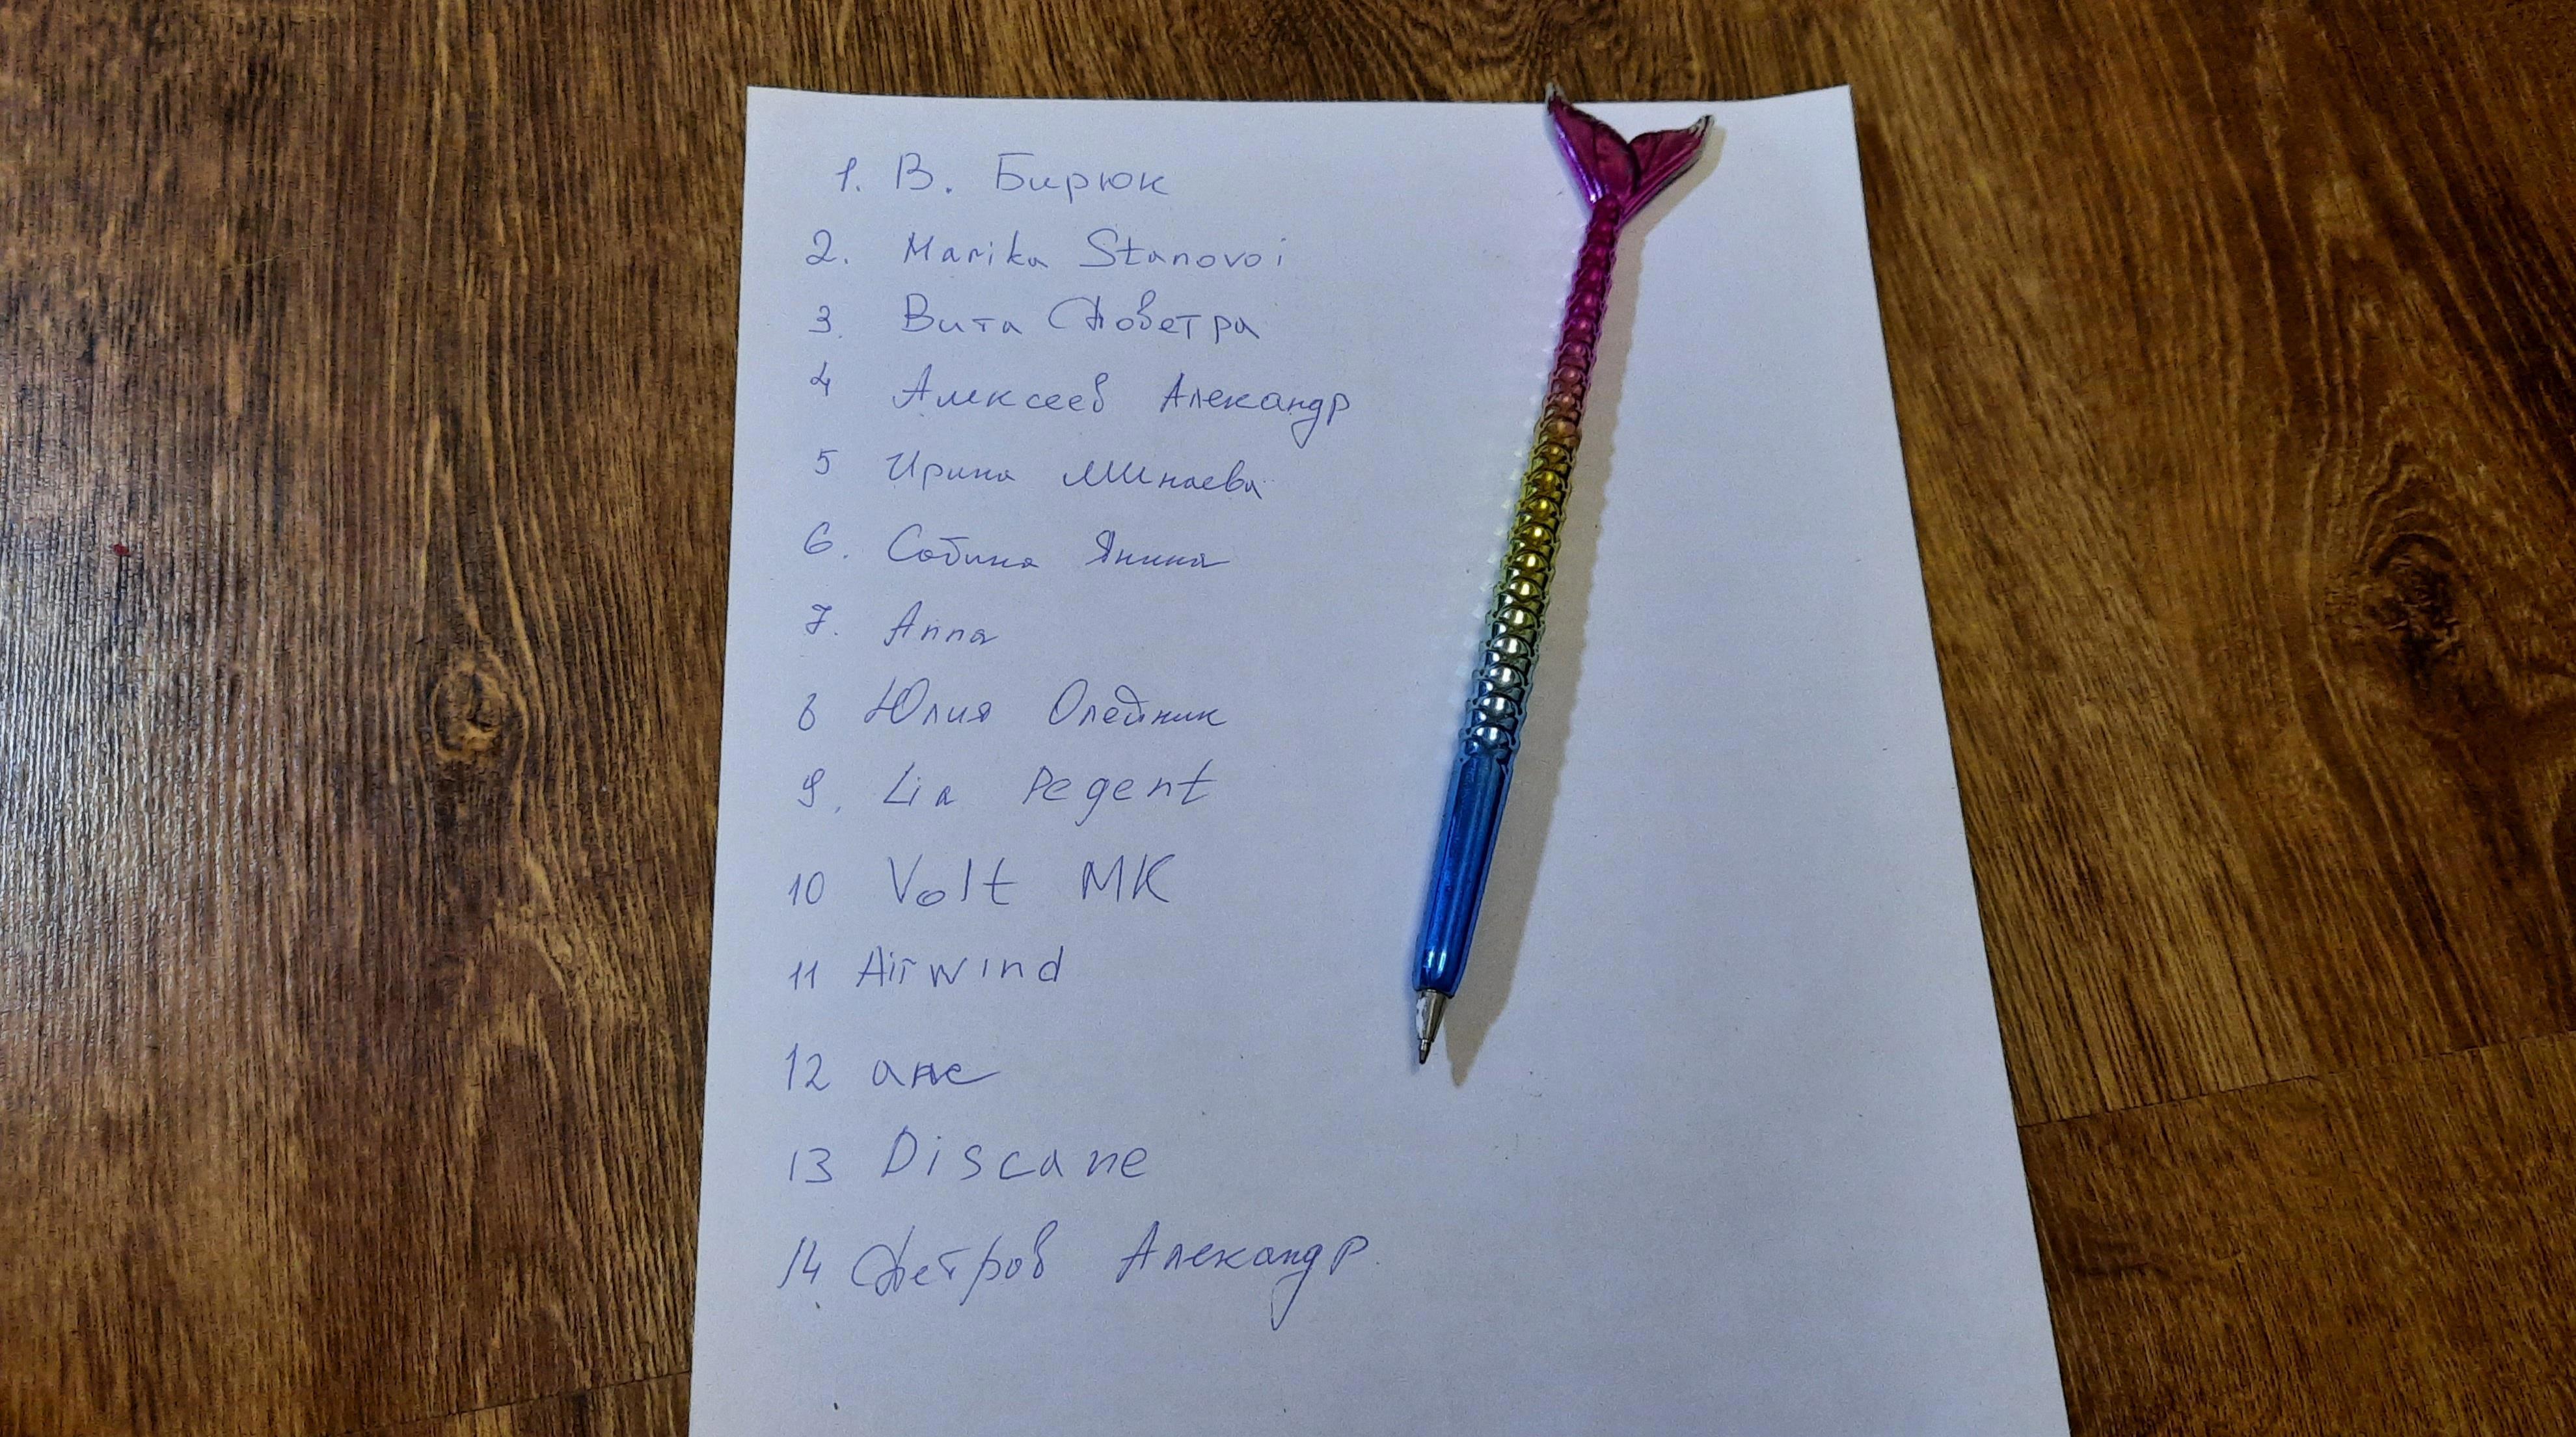 1. В. Бирюк
2. Marika Stanovoi
3. Вита Поветра
4 Алексеев Александр
5 Ирина Минаева
6. Сабина Янина
7. Anna
8 Юлия Олейник
9. Lia Pegent
10 Volt MK
11 Airwind
12 анс
13 Discane
14 Петров Александр